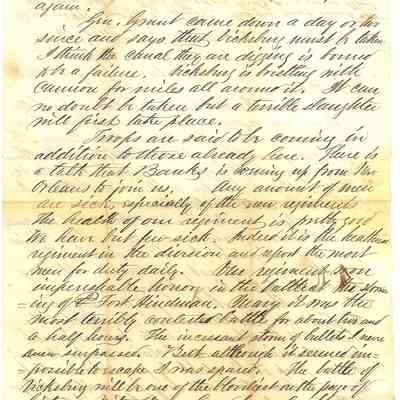 again.
Gen. Grant came down a day or two
since and says that Vicksburg must be taken
I think the canal they are digging is bound
to be a failure. Vicksburg is bristling with
cannon for miles all around it. It can
no doubt be taken but a terrible slaughter
will first take place.
Troops are said to be coming in
addition to those already here. There is
a talk that Banks is coming up from New
Orleans to join us. Any amount of men
are sick, especially of the new regiments
the health of our regiment is pretty good
We have but few sick. Indeed it is the healthiest
regiment in the division and report the most
men for duty daily. Our regiment won
imperishable honor in the battle & the storm-
=ing of Fort Hindman. Many it was the
most terribly contested battle for about two and
a half hours. The incessant storm of bullets I never
seen surpassed. But although it seemed im-
=possible to escape I was spared. The battle of
Vicksburg will be one of the bloodiest on the page of